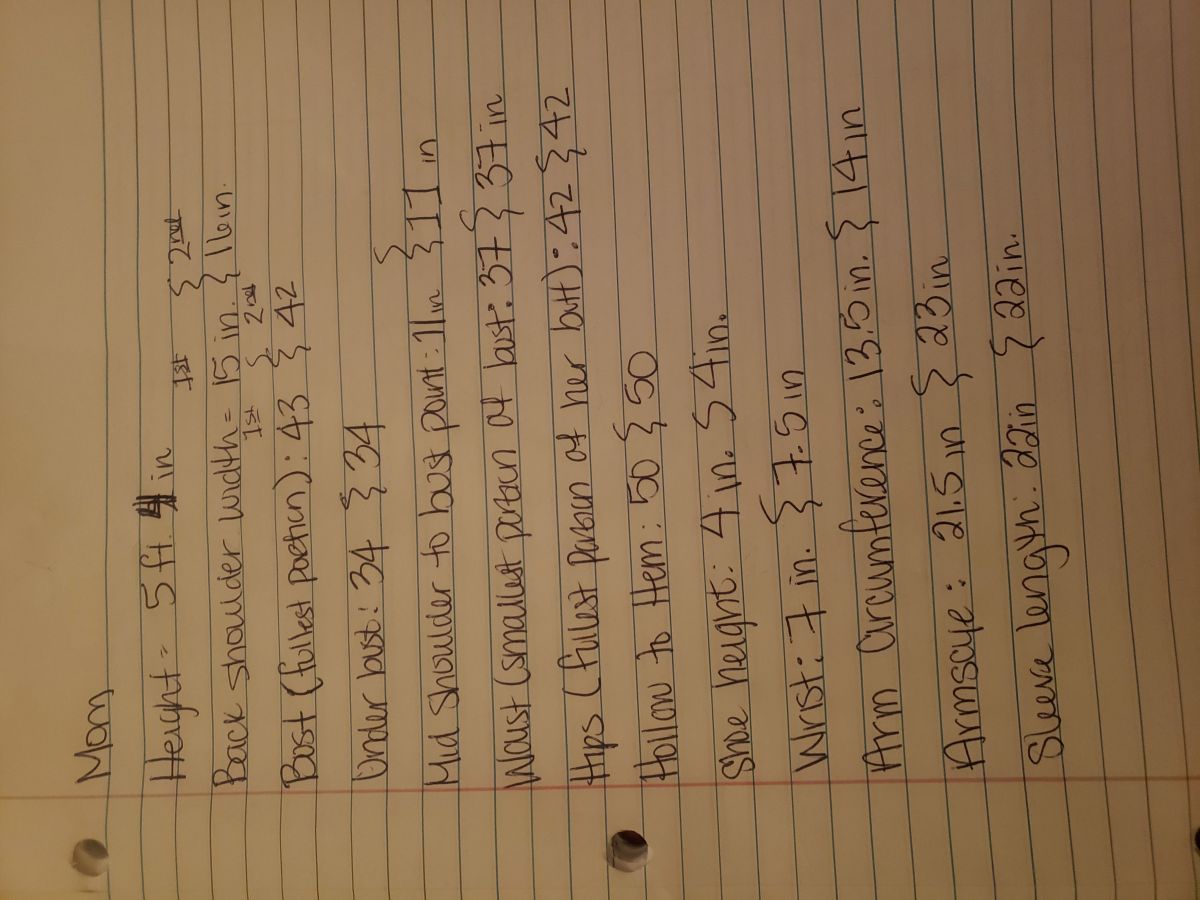 Mom
Height = 5 ft. 4 in
1st } 2nd
Back shoulder width = 15 in. { 16in.
1st } 2nd
Bust (fullest portion) : 43 { 42
Under bust : 34 } 34
Mid shoulder to bust point : 11in } 11 in
Waist (smallest portion of bust : 37 } 37 in
Hips (fullest portion of her butt) : 42 } 42
Hollow to Hem : 50 } 50
Shoe height : 4 in. } 4in.
Wrist : 7 in. } 7.5 in
Arm Circumference : 13.5 in. { 14 in
Armscye : 21.5 in } 23 in
Sleeve length : 22in } 22in.